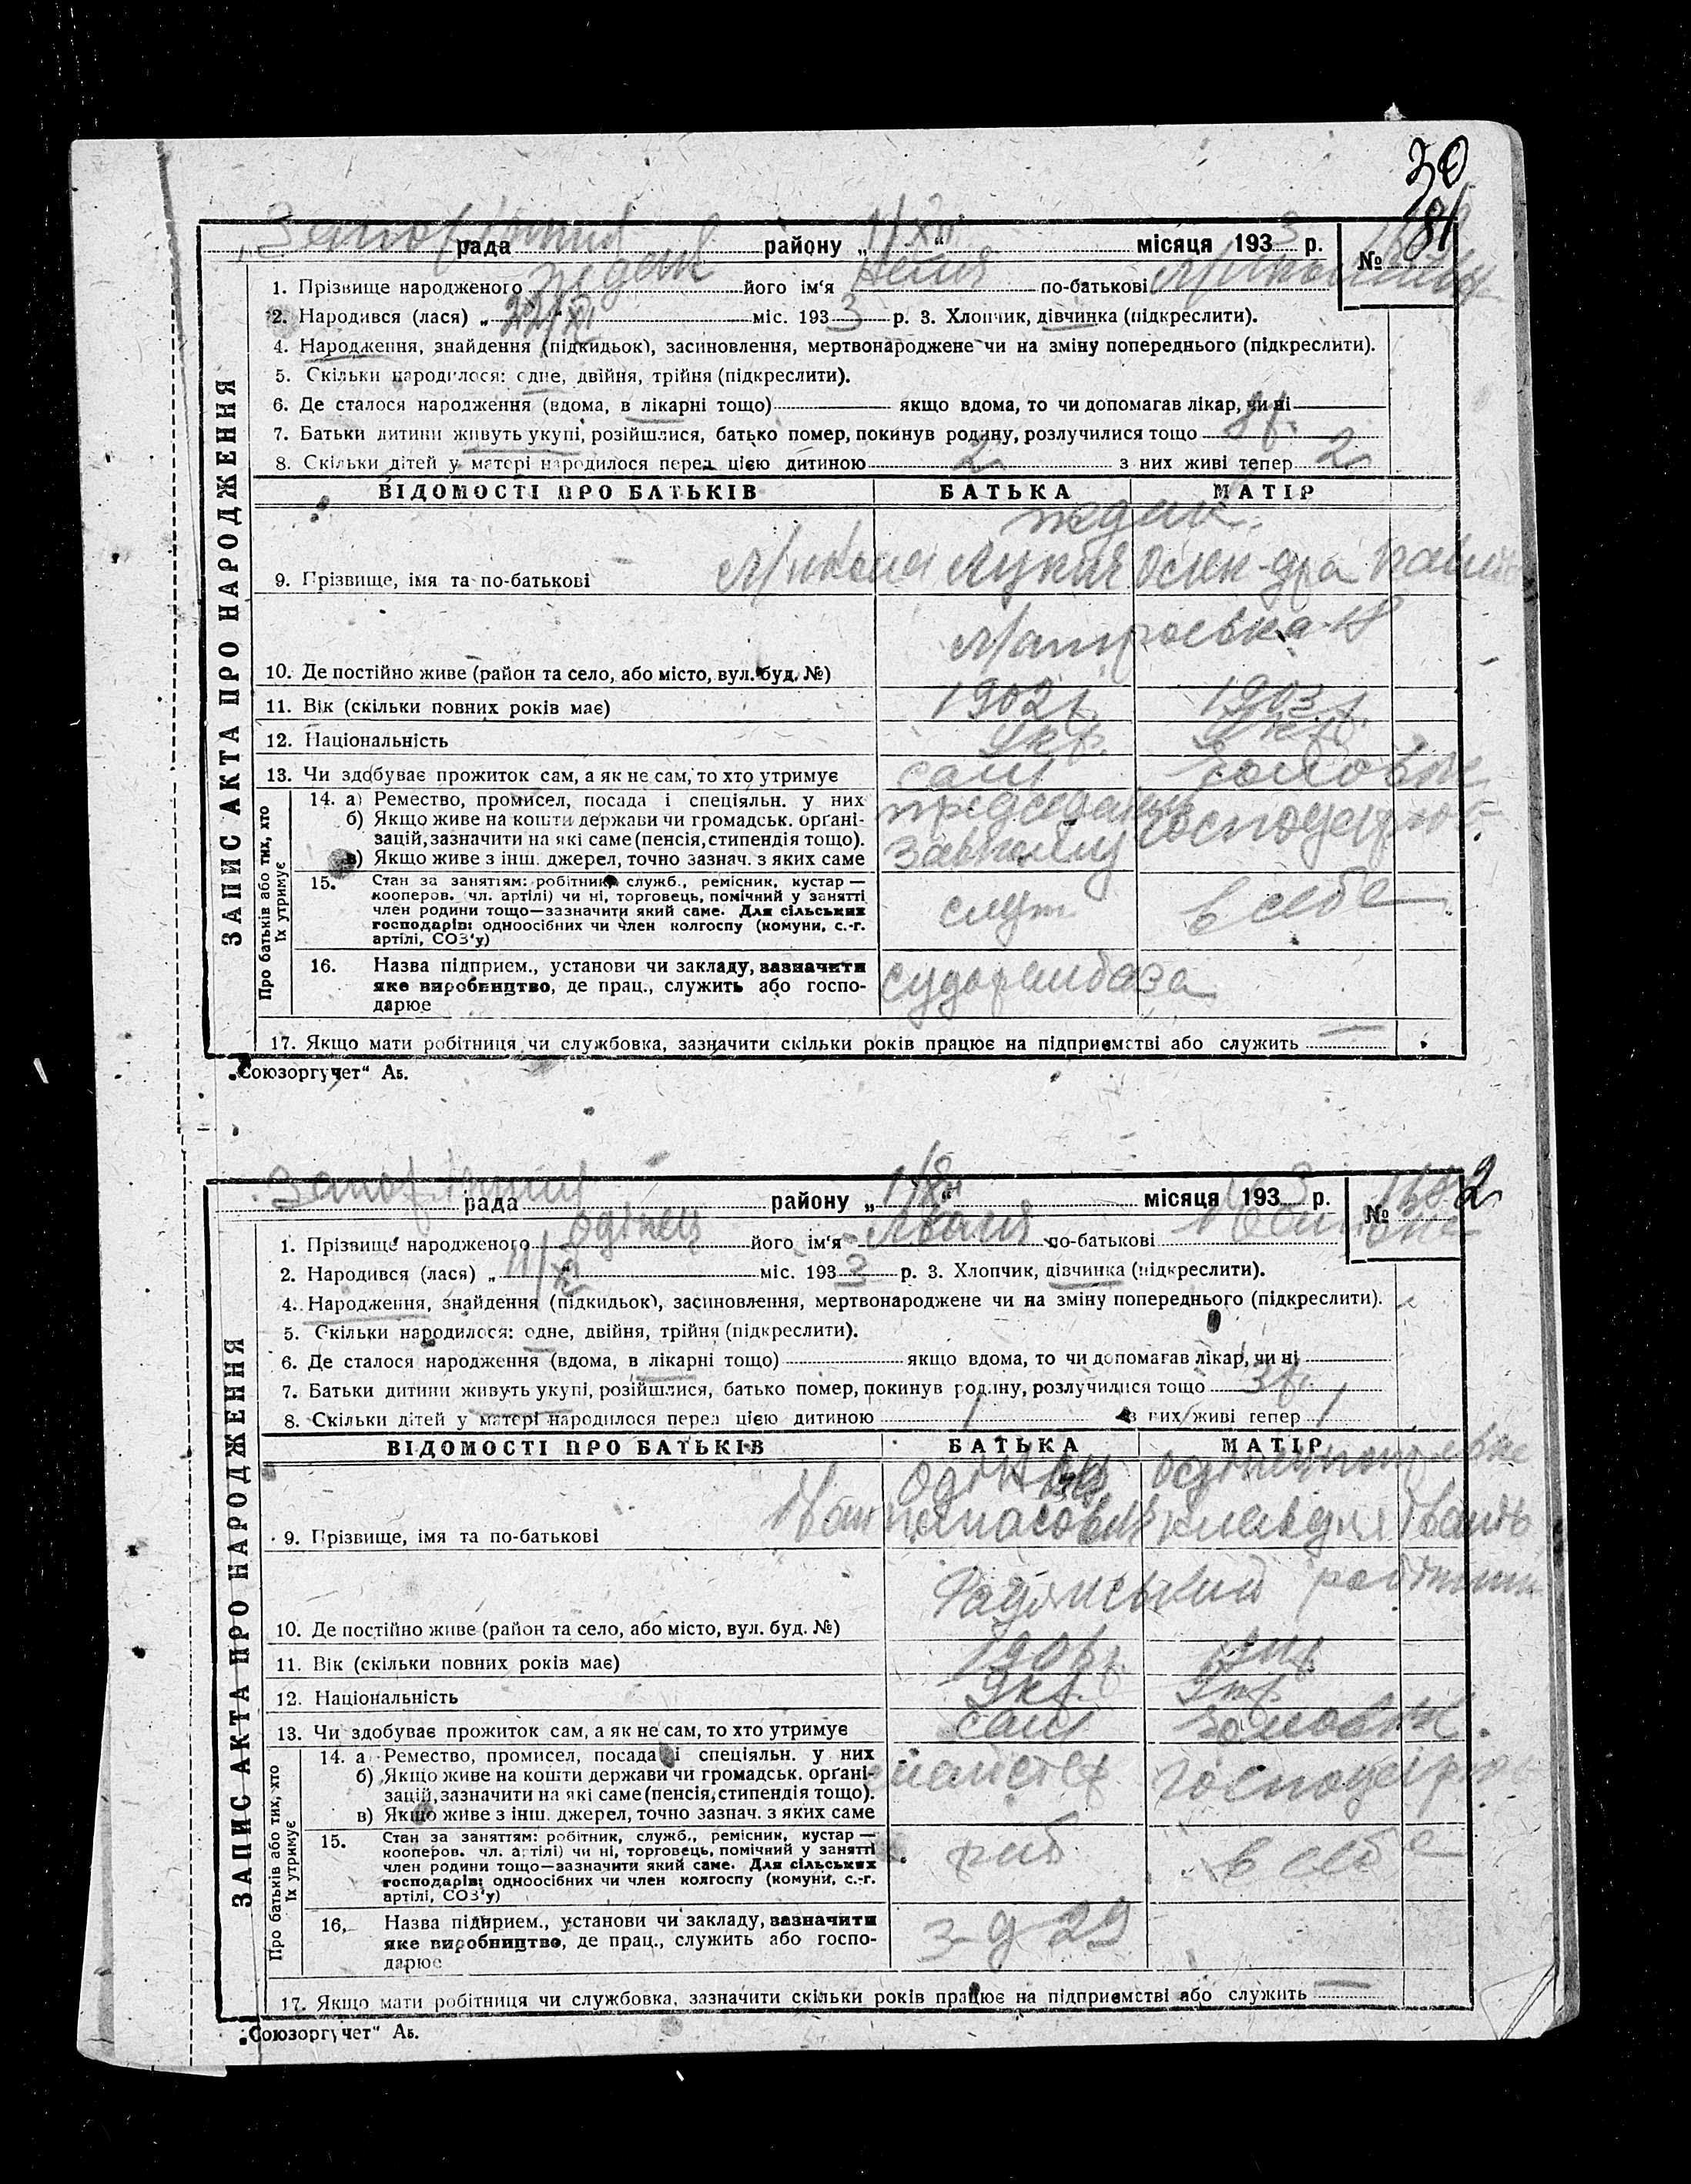 30
181
рада района „ 1/XII “ місяця 1933 р. №
1. Прізвище народженого його ім'я Неля по-батькові
2. Народився (лася) „ “ міс. 1933 р. 3. Хлопчик, дівчинка (підкреслити).
4. Народження, знайдення (підкидьок), засиновлення, мертвонароджене чи на зміну попереднього (підкреслити).
5. Скільки народилося: одне, двійня, трійня (підкреслити).
6. Де сталося народження (вдома, в лікарні тощо) якщо вдома, то чи допомагав лікар, чи ні
7. Батьки дитини живуть укупі, розійшлися, батько помер, покинув родину, розлучилися тощо 8р.
8. Скільки дітей у матері народилося перед цією дитиною 2 з них живі тепер 2
ЗАПИС АКТА ПРО НАРОДЖЕННЯ
ВІДОМОСТІ ПРО БАТЬКІВ БАТЬКА МАТІР
9. Прізвище, імя та по-батькові
10. Де постійно живе (район та село, або місто, вул. буд. №)
11. Вік (скільки повних років має) 1902р. 1903р.
12. Національність Укр. Укр.
13. Чи здобуває прожиток сам, а як не сам, то хто утримує сам
Про батьків або тих, хто їх утримує
14. а) Ремество, промисел, посада і спеціяльн. у них
б) Якщо живе на кошти держави чи громадськ. орґані-
зацій, зазначити на які саме (пенсія, стипендія тощо).
в) Якщо живе з інш. джерел, точно зазнач. з яких саме
председатель завкому
15. Стан за заняттям: робітник, служб., ремісник, кустар —
кооперов. чл. артілі) чи ні, торговець, помічний у занятті
член родини тощо—зазначити який саме. Для сільських
господарів: одноосібних чи член колгоспу (комуни, с.-г.
артілі, СОЗ'у)
служ. в себе
16. Назва підприєм., установи чи закладу, зазначити
яке виробництво, де прац., служить або госпо-
дарює
судорембаза
17. Якщо мати робітниця чи службовка, зазначити скільки років працює на підприємстві або служить —
„Союзоргучет“ Аб.
рада району „ 1/XII “ місяця 1933 р. № 1682
1. Прізвище народженого Одінец його ім'я по-батькові
2. Народився (лася) „ 11/XI “ міс. 1933 р. 3. Хлопчик, дівчинка (підкреслити).
4. Народження, знайдення (підкидьок), засиновлення, мертвонароджене чи на зміну попереднього (підкреслити).
5. Скільки народилося: одне, двійня, трійня (підкреслити).
6. Де сталося народження (вдома, в лікарні тощо) якщо вдома, то чи допомагав лікар, чи ні
7. Батьки дитини живуть укупі, розійшлися, батько помер, покинув родину, розлучилися тощо 3р.
8. Скільки дітей у матері народилося перед цією дитиною 1 з них живі тепер 1
ЗАПИС АКТА ПРО НАРОДЖЕННЯ
ВІДОМОСТІ ПРО БАТЬКІВ БАТЬКА МАТІР
9. Прізвище, імя та по-батькові Клавдия
10. Де постійно живе (район та село, або місто, вул. буд. №) Радянський
11. Вік (скільки повних років має) 1906р.
12. Національність Укр. Укр.
13. Чи здобуває прожиток сам, а як не сам, то хто утримує сам
Про батьків або тих, хто їх утримує
14. а) Ремество, промисел, посада і спеціяльн. у них
б) Якщо живе на кошти держави чи громадськ. орґані-
зацій, зазначити на які саме (пенсія, стипендія тощо).
в) Якщо живе з інш. джерел, точно зазнач. з яких саме
15. Стан за заняттям: робітник, служб., ремісник, кустар —
кооперов. чл. артілі) чи ні, торговець, помічний у занятті
член родини тощо—зазначити який саме. Для сільських
господарів: одноосібних чи член колгоспу (комуни, с.-г.
артілі, СОЗ'у)
роб. в себе
16. Назва підприєм., установи чи закладу, зазначити
яке виробництво, де прац., служить або госпо-
дарює
З-д 29
17. Якщо мати робітниця чи службовка, зазначити скільки років працює на підприємстві або служить —
„Союзоргучет“ Аб.